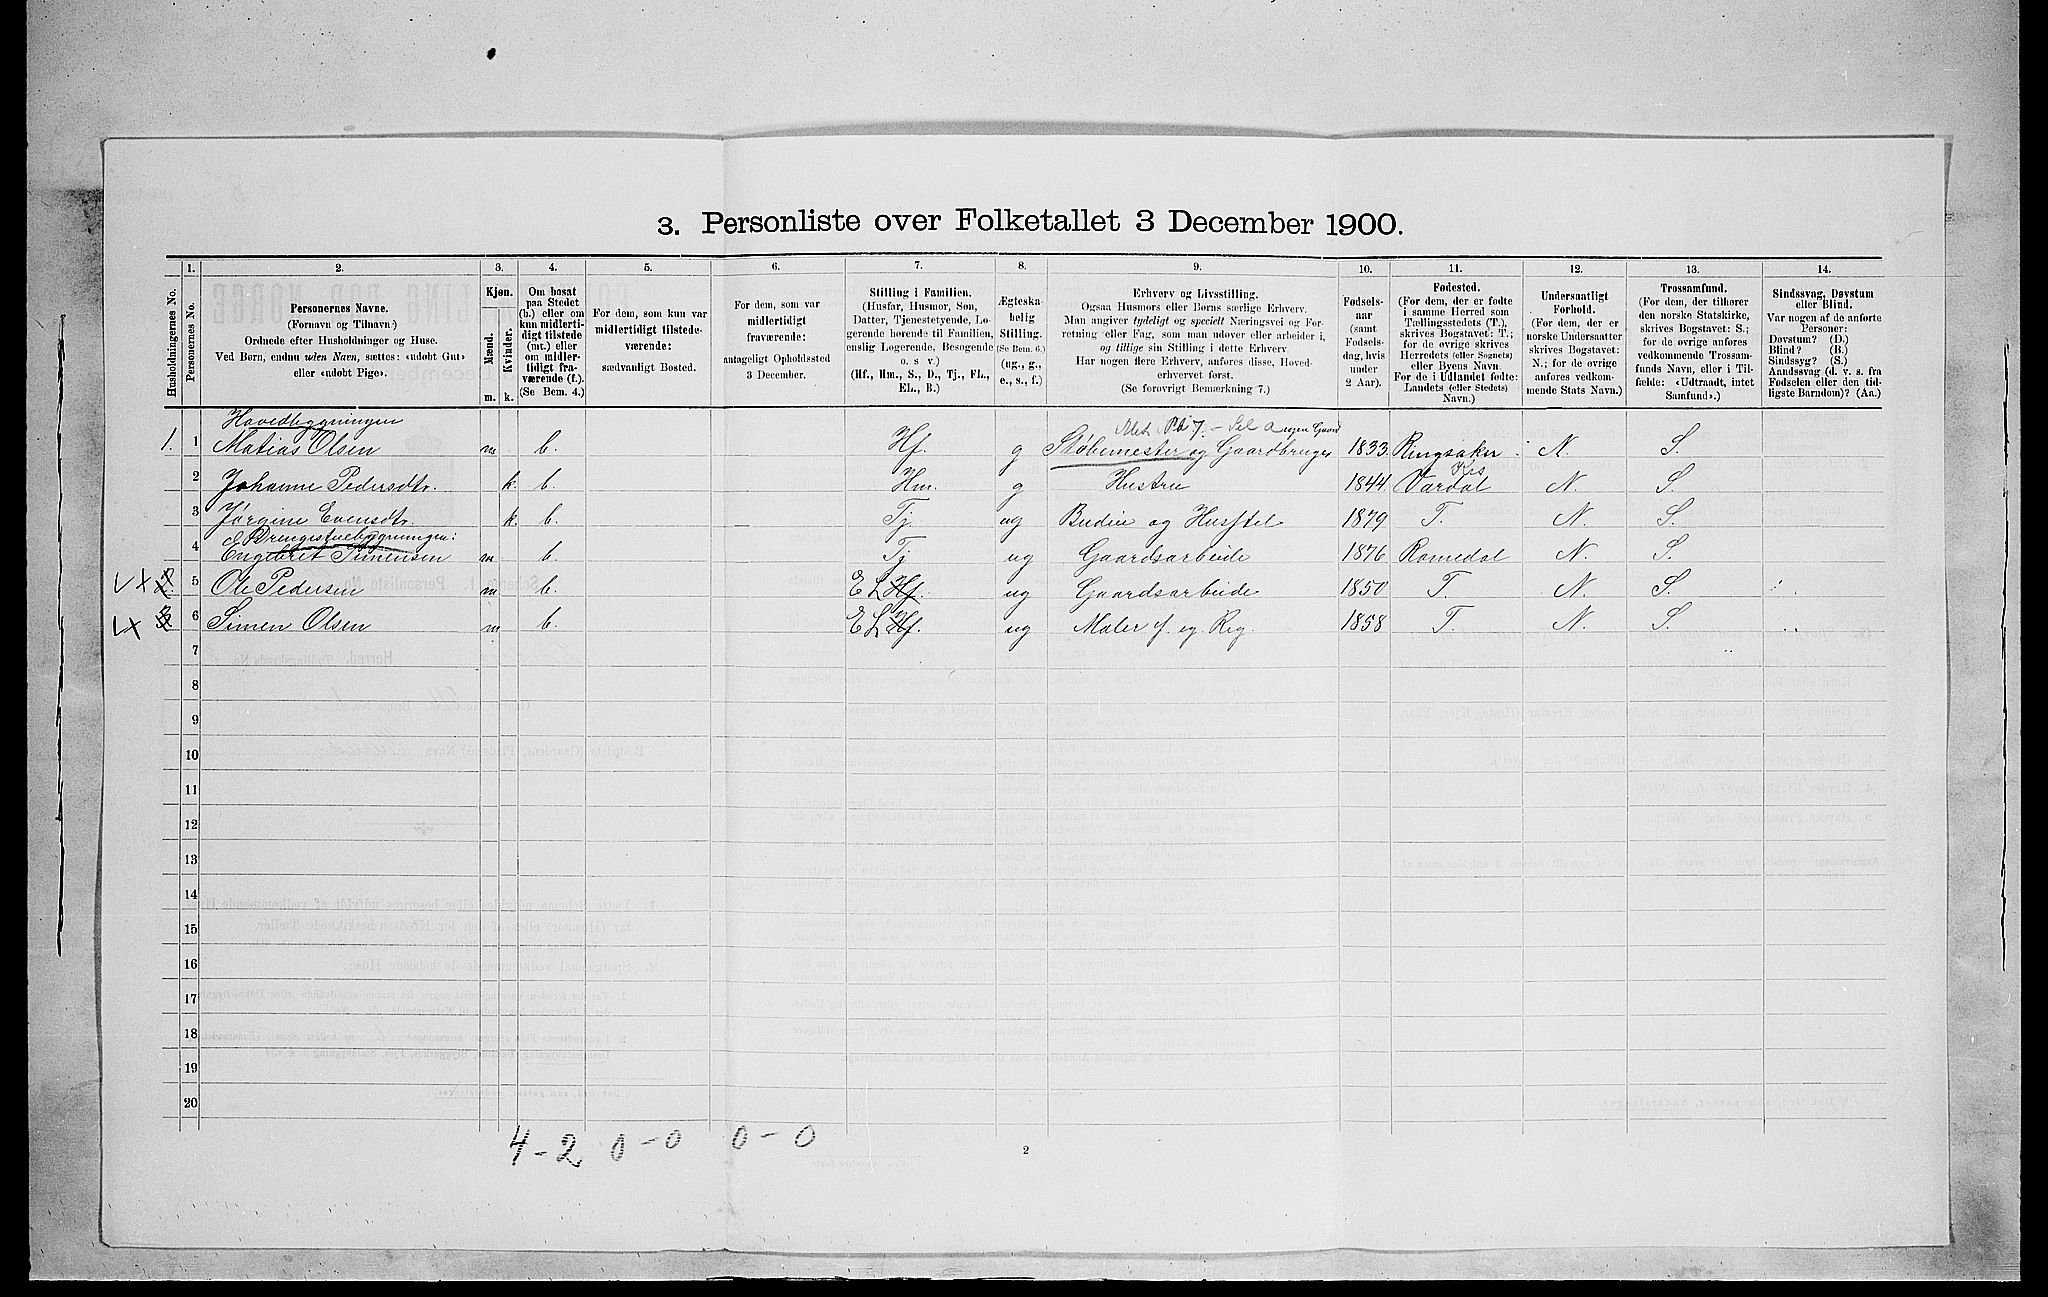 3. Personliste over Folketallet 3 December 1900.
Husholdningernes No.
1.
Personernes No.
2.
Personernes Navne.
(Fornavn og Tilnavn.)
Ordnede efter Husholdninger og Huse.
Ved Børn, endnu uden Navn, sættes: «udøbt Gut»
eller «udøbt Pige».
3.
Kjøn.
Mænd.
Kvinder.
m.
k.
4.
Om bosat
paa Stedet
(b.) eller om
kun midlerti-
digt tilstede
(mt.) eller
om midler-
tidigt fra-
værende (f.).
(Se Bem. 4.)
5.
For dem, som kun var
midlertidigt tilstede-
værende:
sædvanligt Bosted.
6.
For dem, som var
midlertidigt
fraværende:
antageligt Opholdssted
3 December.
7.
Stilling i Familien.
(Husfar, Husmor, Søn,
Datter, Tjenestetyende, Lo-
gerende hørende til Familien,
enslig Logerende, Besøgende
o. s v.)
(Hf., Hm., S., D., Tj., FL.,
EL., B.)
8.
Ægteska-
belig
Stilling.
(Se Bem. 6.)
(ug., g.,
e., s., f.)
9.
Erhverv og Livsstilling.
Ogsaa Husmors eller Børns særlige Erhverv.
Man angiver tydeligt og specielt Næringsvei og For-
retning eller Fag, som man udøver eller arbeider i,
og tillige sin Stilling i dette Erhverv.
Har nogen flere Erhverv, anføres disse, Hoved-
erhvervet først.
(Se forøvrigt Bemærkning 7.)
10.
Fødsels-
aar
(samt
Fødsels-
dag, hvis
under
2 Aar).
11.
Fødested.
(For dem, der er fødte
i samme Herred som
Tællingsstedets (T.),
skrives Bogstavet: T.;
for de øvrige skrives
Herredets (eller Sognets)
eller Byens Navn.
For de i Udlandet fødte:
Landets (eller Stedets)
Navn.)
12.
Undersaatligt
Forhold.
(For dem, der er
norske Undersaatter
skrives Bogstavet:
N.; for de øvrige
anføres vedkom-
mende Stats Navn.)
13.
Trossamfund.
(For dem, der tilhører
den norske Statskirke,
skrives Bogstavet: S.;
for de øvrige anføres
vedkommende Trossam-
funds Navn, eller i Til-
fælde: «Udtraadt, intet
Samfund».)
14.
Sindssvag, Døvstum
eller Blind.
Var nogen af de anførte
Personer:
Døvstum? (D.)
Blind? (B.)
Sindssyg? (S.)
Aandssvag (d. v. s. fra
Fødselen eller den tid-
ligste Barndom)? (Aa.)
Hovedbygningen
1. 1 Matias Olsen m. b. Hf. g Støbemester og Gaardbruger 1833. Ringsaker N. S.
Krs
2 Johanne Pedersdtr. k. b. Hm. g Hustru 1844. Vardal N. S.
3 Jørgine Evensdtr. k. b. Tj. ug Budeie og Husstel 1879 T. N. S.
Drengestuebygningen:
4 Engebret Simensen m. b. Tj ug Gaardsarbeide 1876 Romedal N. S.
2. 5 Ole Pedersen m. b. EL Hf. ug Gaardsarbeide 1850 T. N. S.
3 6 Simen Olsen m. b. EL Hf. ug Maler f. eg. Reg. 1858 T. N. S.
7
8
9
10
11
12
13
14
15
16
17
18
19
20
4-2 0-0 0-0
2